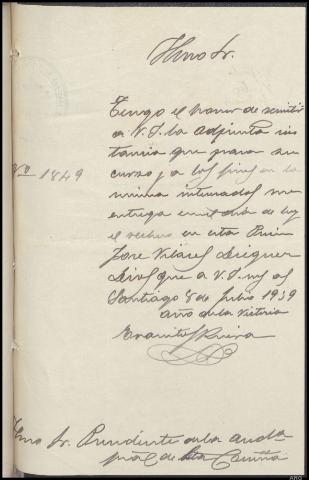 Ilmo Sr.
Tengo el honor de remitir
a V.I. la adjunta ins
tancia que para su
curso y a los fines en la
misma interesados me
entrega en el día de hoy
el vecino en esta
Jose Vilariel
Dios que a V.I. m as
Santiago 8 de Julio 1939
año de la Victoria
Nº 1849
Ilmo Sr. Presidente de la Auda
prál de La Coruña